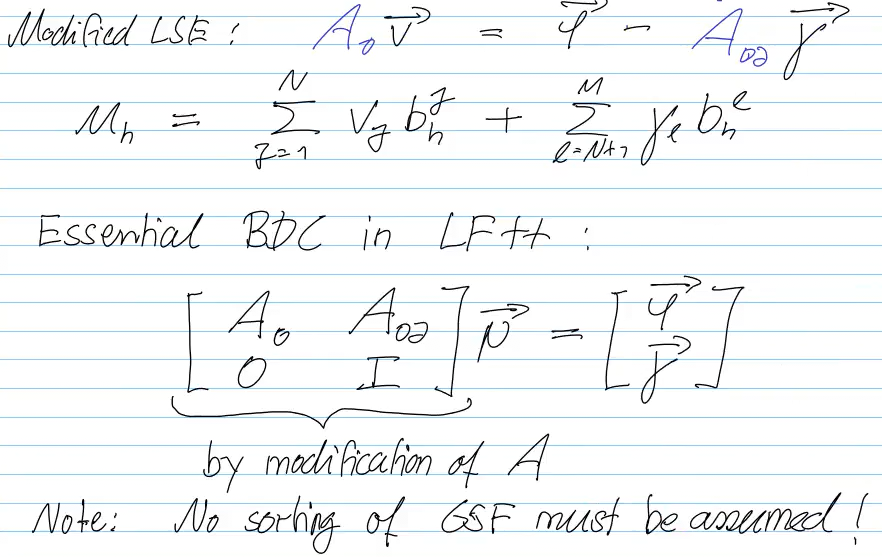 Modified LSE : A₀ v⃗ = φ⃗ − A₀∂ γ⃗
μₕ = ∑_{j=1}^{N} νⱼ bₕʲ + ∑_{ℓ=N+1}^{M} γ_ℓ bₕ^ℓ
Essential BDC in LF++ :
[ A₀ A₀∂ ; O I ] μ⃗ = [ φ⃗ ; γ⃗ ]
by modification of A
Note: No sorting of GSF must be assumed !